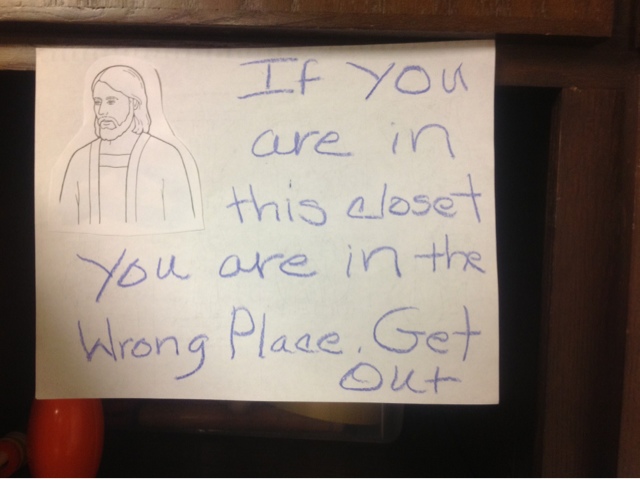 If you
are in
this closet
you are in the
Wrong Place. Get
Out